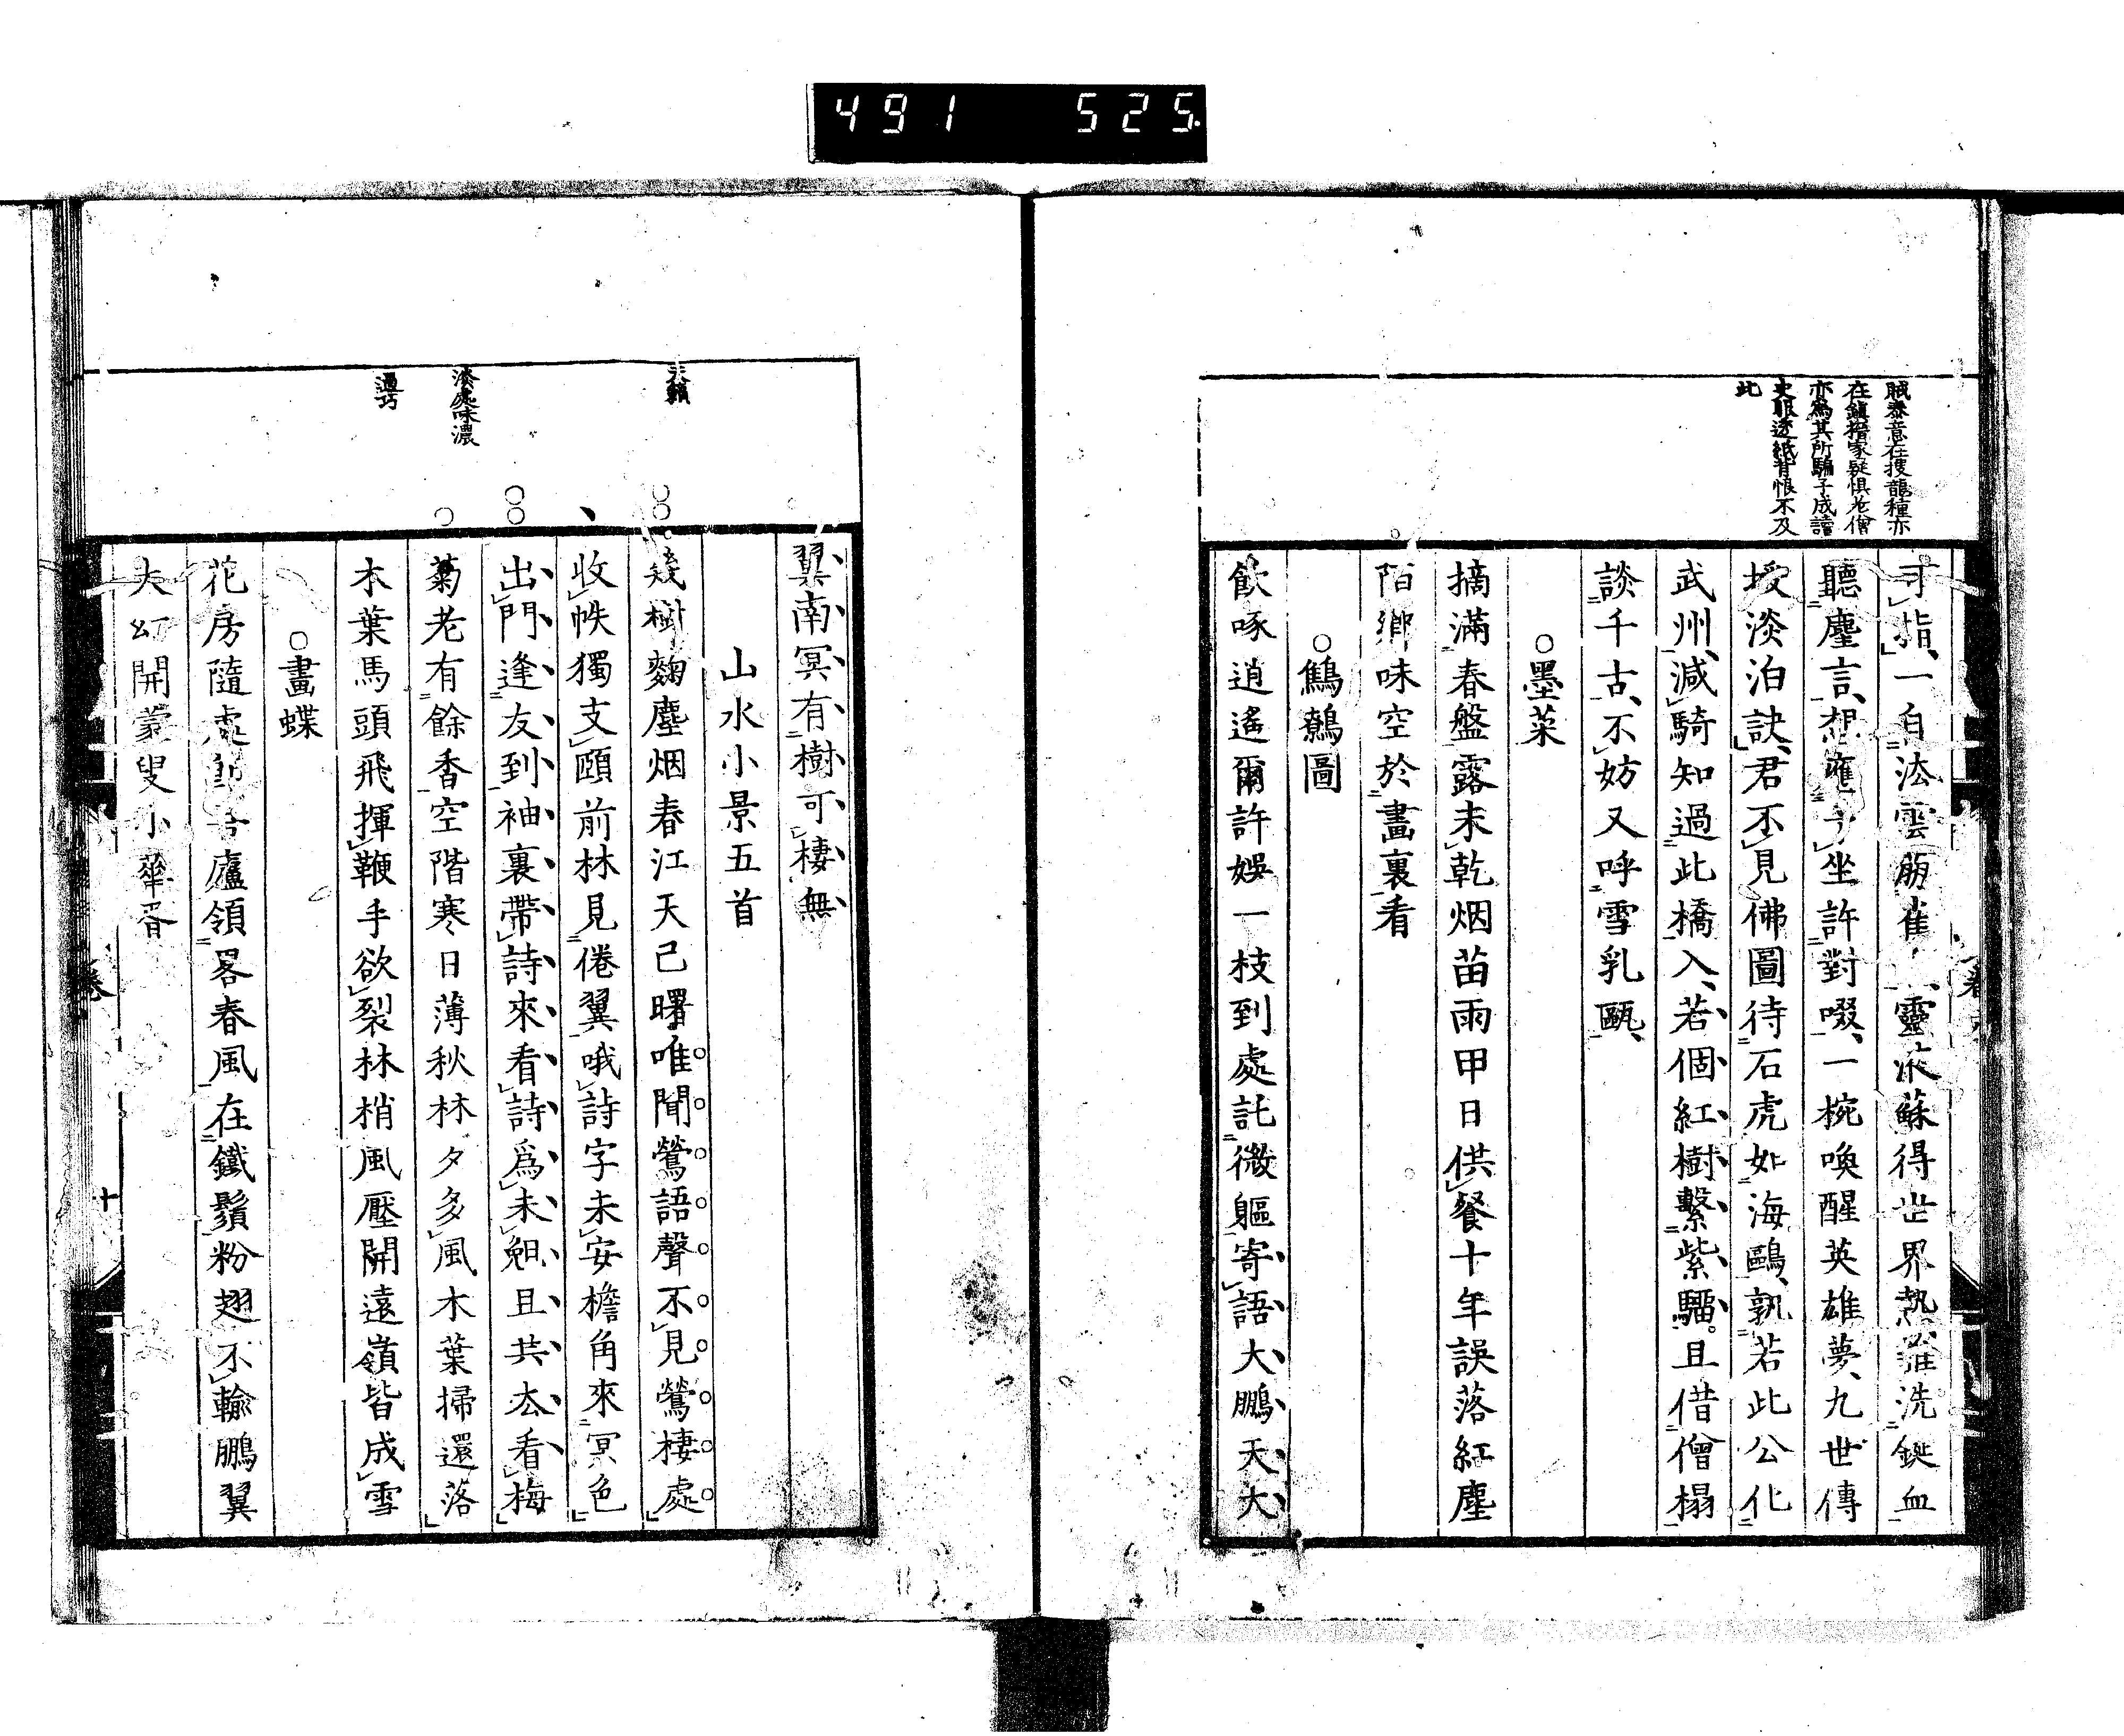 491 525
賊泰意在搜龍種亦
在鎭揩家疑惧老僧
亦爲其所騙子成讀
史眼透紙背恨不及
此
可指一白法雲崩雀靈液蘇得世界熱洗鋋血
聽塵言想應坐許對啜一椀喚醒英雄夢九世傳
授淡泊訣君不見佛圖待石虎如海鷗孰若此公化
武州減騎知過此橋入若個紅樹繫紫騮且借僧榻
談千古不妨又呼雪乳甌
○墨菜
摘滿春盤露未乾烟苗雨甲日供餐十年誤落紅塵
陌鄉味空於畫裏看
○鷦鷯圖
飲啄逍遙爾許娛一枝到處託微軀寄語大鵬天大
翼南冥有樹可棲無
山水小景五首
天籟
幾樹麴塵烟春江天已曙唯聞鶯語聲不見鶯棲處
收帙獨支頤前林見倦翼哦詩字未安檐角來冥色
出門逢友到袖裏帶詩來看詩爲未能且共去看梅
淡處味濃
菊老有餘香空階寒日薄秋林夕多風木葉掃還落
過巧
木葉馬頭飛揮鞭手欲裂林梢風壓開遠嶺皆成雪
○畫蝶
花房隨處即吾廬領畧春風在鐵鬚粉翅不輸鵬翼
大幻開蒙叟小華胥
卷
十